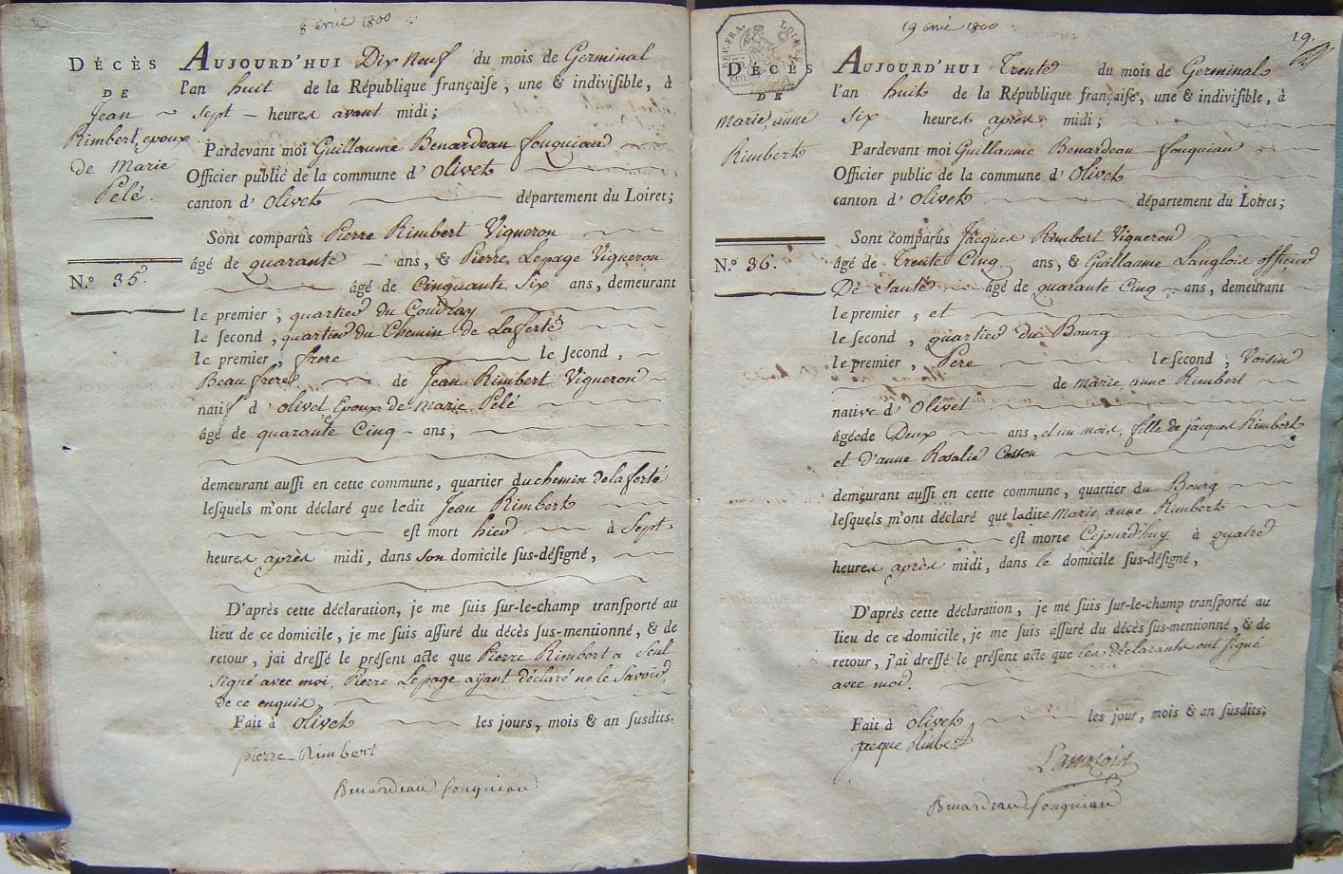 8 avril 1800
DÉCÈS
DE
Jean
Rimbert, epoux
de Marie
Pelé.
N.º 35.
AUJOURD'HUI Dix Neuf du mois de Germinal
l'an huit de la République françaiſe, une & indiviſible, à
Sept heures avant midi;
Pardevant moi Guillaume Benardeau fouquiau
Officier public de la commune d'Olivet
canton d'Olivet département du Loiret;
Sont comparûs Pierre Rimbert Vigneron
âgé de quarante ans, & Pierre Lepage Vigneron
âgé de Cinquante Six ans, demeurant
le premier, quartier du Coudray
le ſecond, quartier du Chemin de Laferté
le premier, frere le ſecond,
Beaufrere de Jean Rimbert Vigneron
natif d'olivet Epoux de Marie Pelé
âgé de quarante Cinq ans,
demeurant auſſi en cette commune, quartier du chemin de la ferté
leſquels m'ont déclaré que ledit Jean Rimbert
eſt mort hier à Sept
heures après midi, dans son domicile ſus-déſigné,
D'après cette déclaration, je me ſuis ſur-le-champ tranſporté au
lieu de ce domicile, je me ſuis aſſuré du décès ſus-mentionné, & de
retour, j'ai dreſſé le préſent acte que Pierre Rimbert a Seul
Signé avec moi, Pierre Lepage ayant déclaré ne le Savoir,
de ce enquis,
Fait à Olivet les jours, mois & an ſusdits.
pierre Rimbert
Benardeau fouquiau
19 avril 1800
19.
RÉP. FRA. LOIRET
DÉCÈS
DE
Marie, anne
Rimbert
N.º 36.
AUJOURD'HUI Trente du mois de Germinal
l'an huit de la République françaiſe, une & indiviſible, à
Six heures après midi;
Pardevant moi Guillaume Benardeau fouquiau
Officier public de la commune d'Olivet
canton d'Olivet département du Loiret;
Sont comparûs Jacques Rimbert Vigneron
âgé de trente Cinq ans, & Guillaume Langlois officier
De Santé âgé de quarante Cinq ans, demeurant
le premier, et
le ſecond, quartier du Bourg
le premier, Pere le ſecond, Voisin
de marie anne Rimbert
native d'Olivet
âgée de Deux ans, et un mois, fille de jacques Rimbert
et d'anne Rosalie Cosson
demeurant auſſi en cette commune, quartier du Bourg
leſquels m'ont déclaré que ladite Marie, anne Rimbert
eſt morte Cejourd'huy à quatre
heures après midi, dans le domicile ſus-déſigné,
D'après cette déclaration, je me ſuis ſur-le-champ tranſporté au
lieu de ce domicile, je me ſuis aſſuré du décès ſus-mentionné, & de
retour, j'ai dreſſé le préſent acte que les déclarants ont signé
avec moi.
Fait à Olivet, les jour, mois & an ſusdits;
jacque Rimbert
Langlois
Benardeau fouquiau